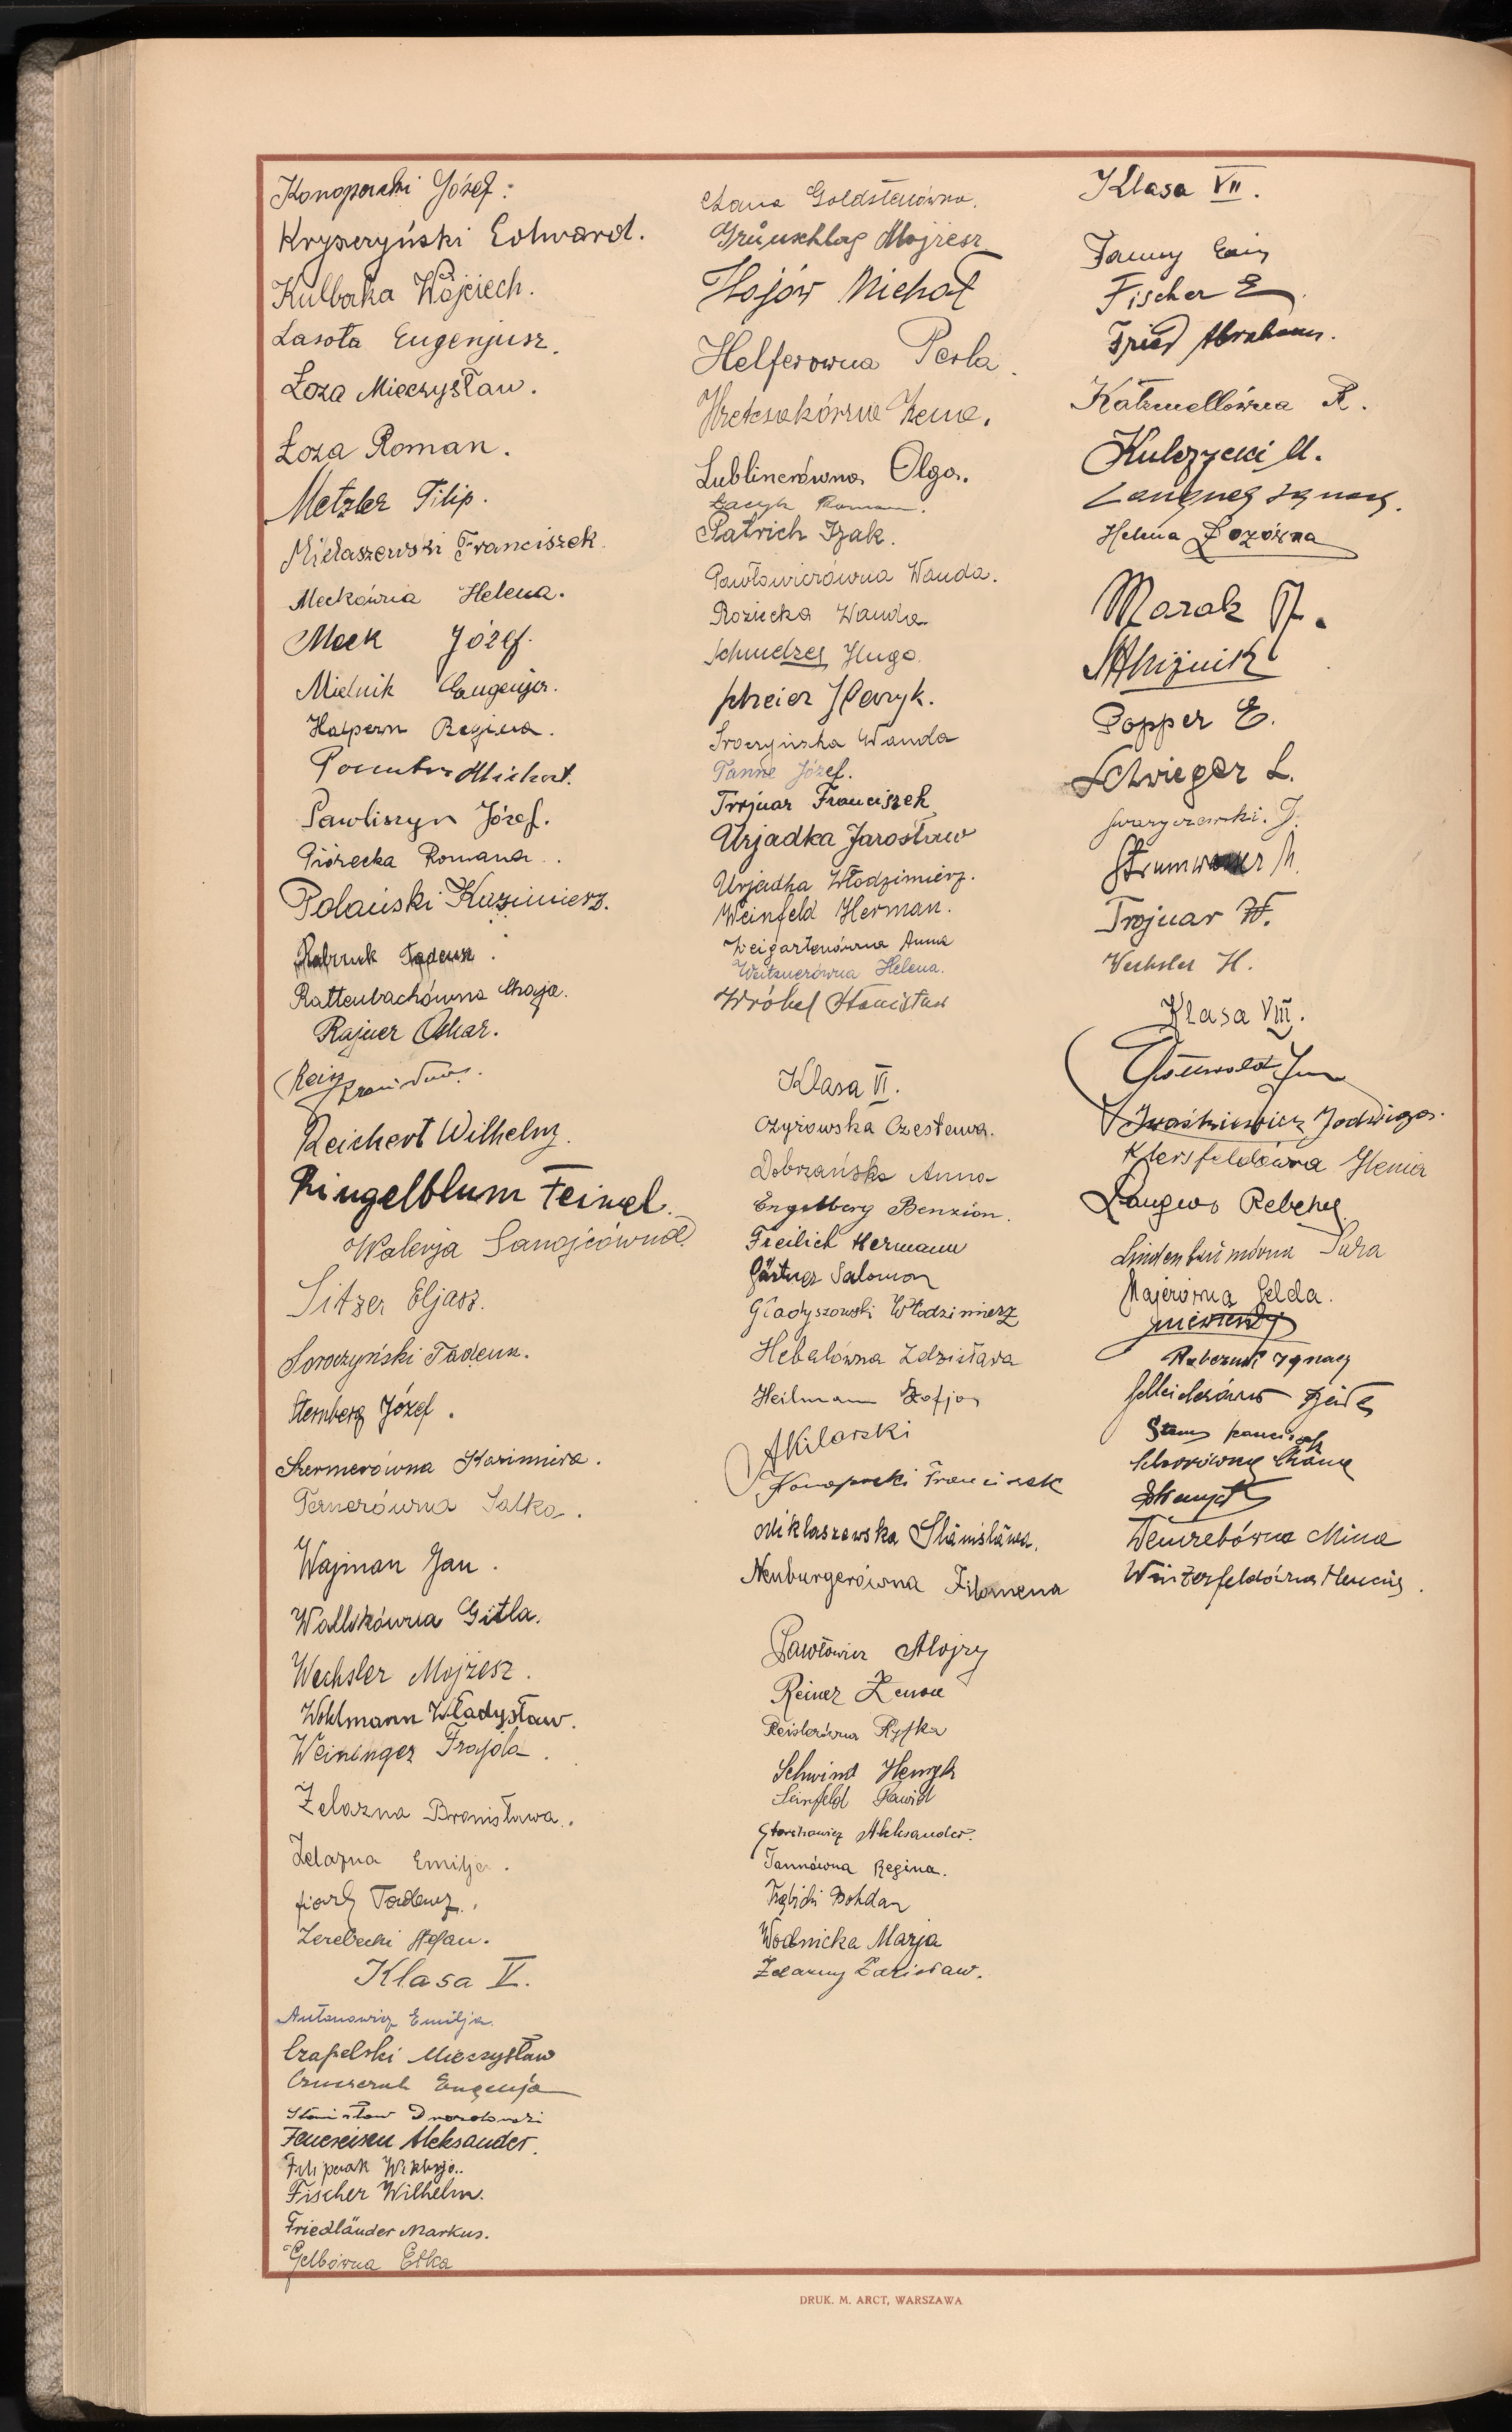 Konopacki Józef.
Kryszczyński Edward.
Kulbaka Wojciech.
Lasota Eugenjusz.
Łoza Mieczysław.
Łoza Roman.
Metzler Filip.
Mikłaszewski Franciszek.
Meckówna Helena.
Meck Józef.
Mielnik Eugenja.
Halpern Regina.
Michał.
Pawliszyn Józef.
Piórecka Romana.
Polański Kazimierz.
Tadeusz.
Rattenbachówna Chaja.
Rajner Oskar.
Reichert Wilhelm.
Ringelblum Feiwel.
Walerja Sanojcówna
Sitzer Eljasz.
Soroczyński Tadeusz.
Sternberg Józef.
Szermerówna Kazimiera.
Ternerówna Salka.
Wajman Jan.
Gitla.
Wechsler Mojżesz.
Wohlmann Władysław.
Weininger Frajda.
Żelazna Bronisława.
Żelazna Emilja.
Tadeusz.
Żerebecki Stefan.
Klasa V.
Antonowicz Emilja.
Czapelski Mieczysław
Eugenja
Stanisław
Feuereisen Aleksander.
Filipczak Wiktorja.
Fischer Wilhelm.
Friedländer Markus.
Gelbówna Etka
Goldsternówna.
Grünschlag Mojżesz
Hojów Michał
Helferówna Perla.
Lublinerówna Olga.
Łacyk Roman.
Patrich Izak.
Pawłowiczówna Wanda.
Rozucka Wanda
Hugo.
Schreier Henryk.
Sroczyńska Wanda
Tanne Józef.
Trojnar Franciszek
Urjadka Jarosław
Urjadka Włodzimierz.
Weinfeld Herman.
Weigartenówna Anna
Weitznerówna Helena.
Wróbel Stanisław
Klasa VI.
Czyrowska Czesława.
Dobrzańska Anna
Engelberg Benzion.
Freilich Hermann
Gärtner Salomon
Gładyszowski Włodzimierz
Hebalówna Zdzisława
Heilmann Zofja
A Kilarski
Konopacki Franciszek
Miklaszewska Stanisława.
Neuburgerówna Filomena
Pawłowicz Alojzy
Reiner Zenon
Reislerówna Ryfka
Schwind Henryk
Seinfeld Dawid
Aleksander.
Tannówna Regina.
Trębicki Bohdan
Wodnicka Marja
Żelazny Zdzisław.
Klasa VII.
Fanny
Fischer E
Fried Abraham.
Katzmellówna R.
Kulczycki M.
Langnas Ignacy.
Helena Łozówna
Marak
Popper E.
Schwieger L.
Swaryczewski. J.
Strumwasser M.
Trojnar W.
Wechsler H.
Klasa VIII.
Gottwald Jan
Iwaśkiewicz Jadwiga.
Klersfeldówna Henia
Langnas
Lindenbaumówna Sara
Majerówna Gelda.
Ignacy
Franciszek
Weintrebówna Mina